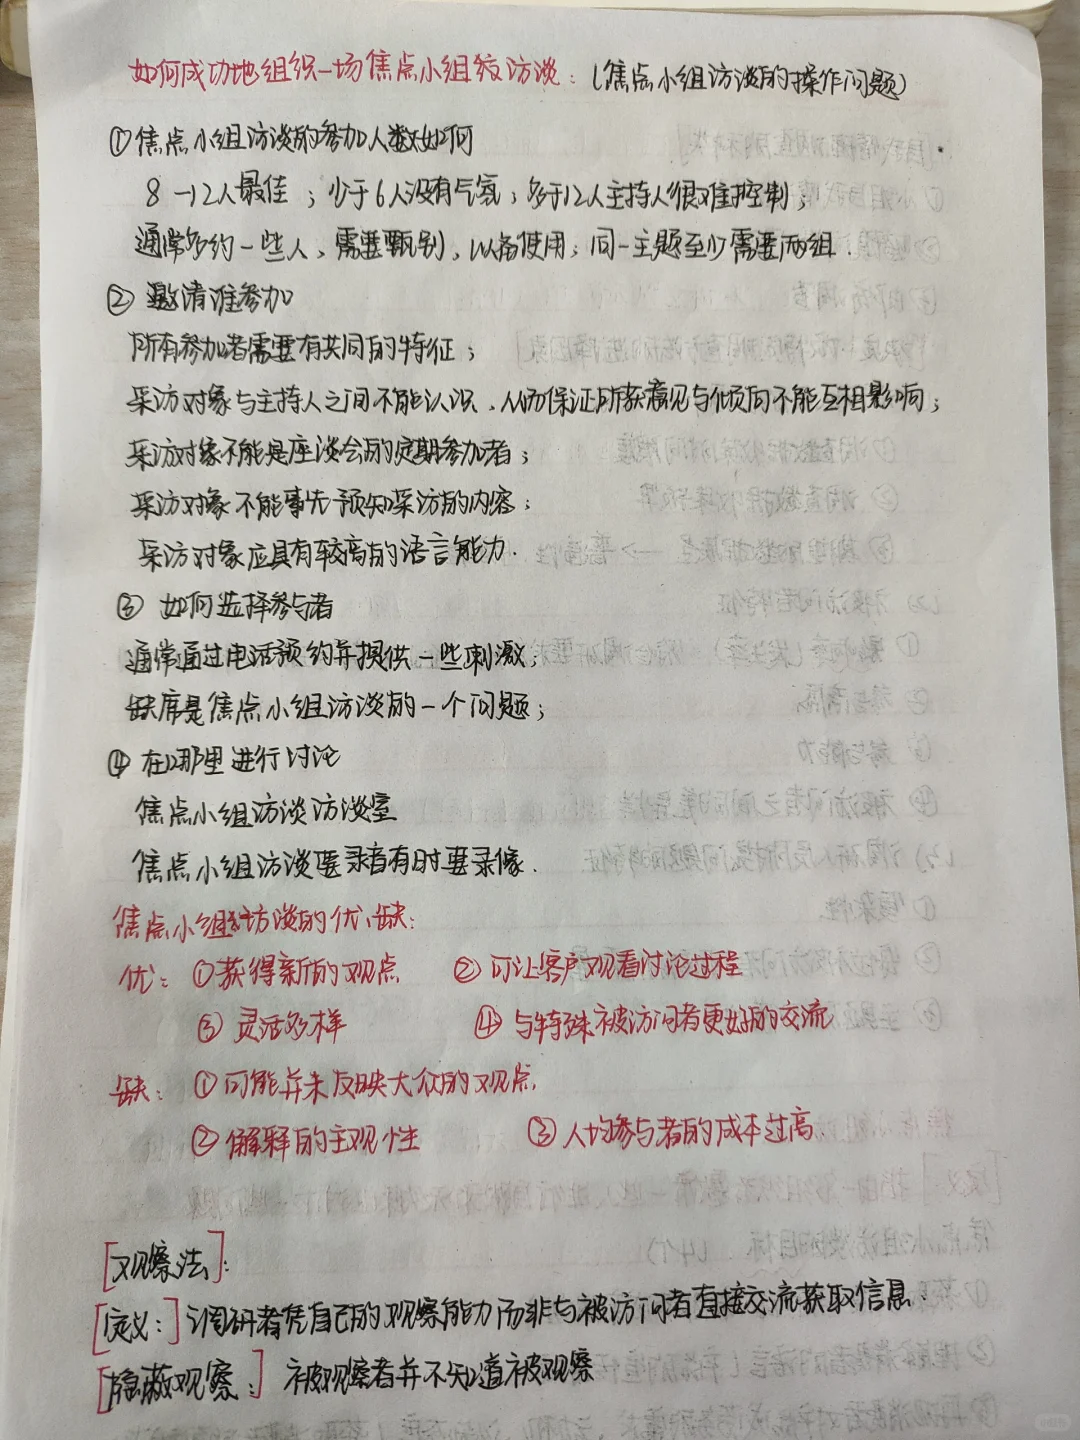 如何成功地组织一场焦点小组访谈：（焦点小组访谈的操作问题）
①焦点小组访谈的参加人数如何
8一12人最佳；少于6人没有气氛；多于12人主持人很难控制；
通常多约一些人，需要甄别，以备使用；同一主题至少需要两组.
②邀请谁参加
所有参加者需要有共同的特征；
采访对象与主持人之间不能认识、从而保证所获意见与倾向不能互相影响；
采访对象不能是座谈会的定期参加者；
采访对象不能事先预知采访的内容；
采访对象应具有较高的语言能力.
③如何选择参与者
通常通过电话预约并提供一些刺激；
缺席是焦点小组访谈的一个问题；
④在哪里进行讨论
焦点小组访谈访谈室
焦点小组访谈要录音有时要录像.
焦点小组访谈的优、缺：
优：①获得新的观点 ②可让客户观看讨论过程
③灵活多样 ④与特殊被访问者更好的交流
缺：①可能并未反映大众的观点
②解释的主观性 ③人均参与者的成本过高
[观察法]：
[定义：]调研者凭自己的观察能力而非与被访问者直接交流获取信息.
[隐蔽观察：]被观察者并不知道被观察